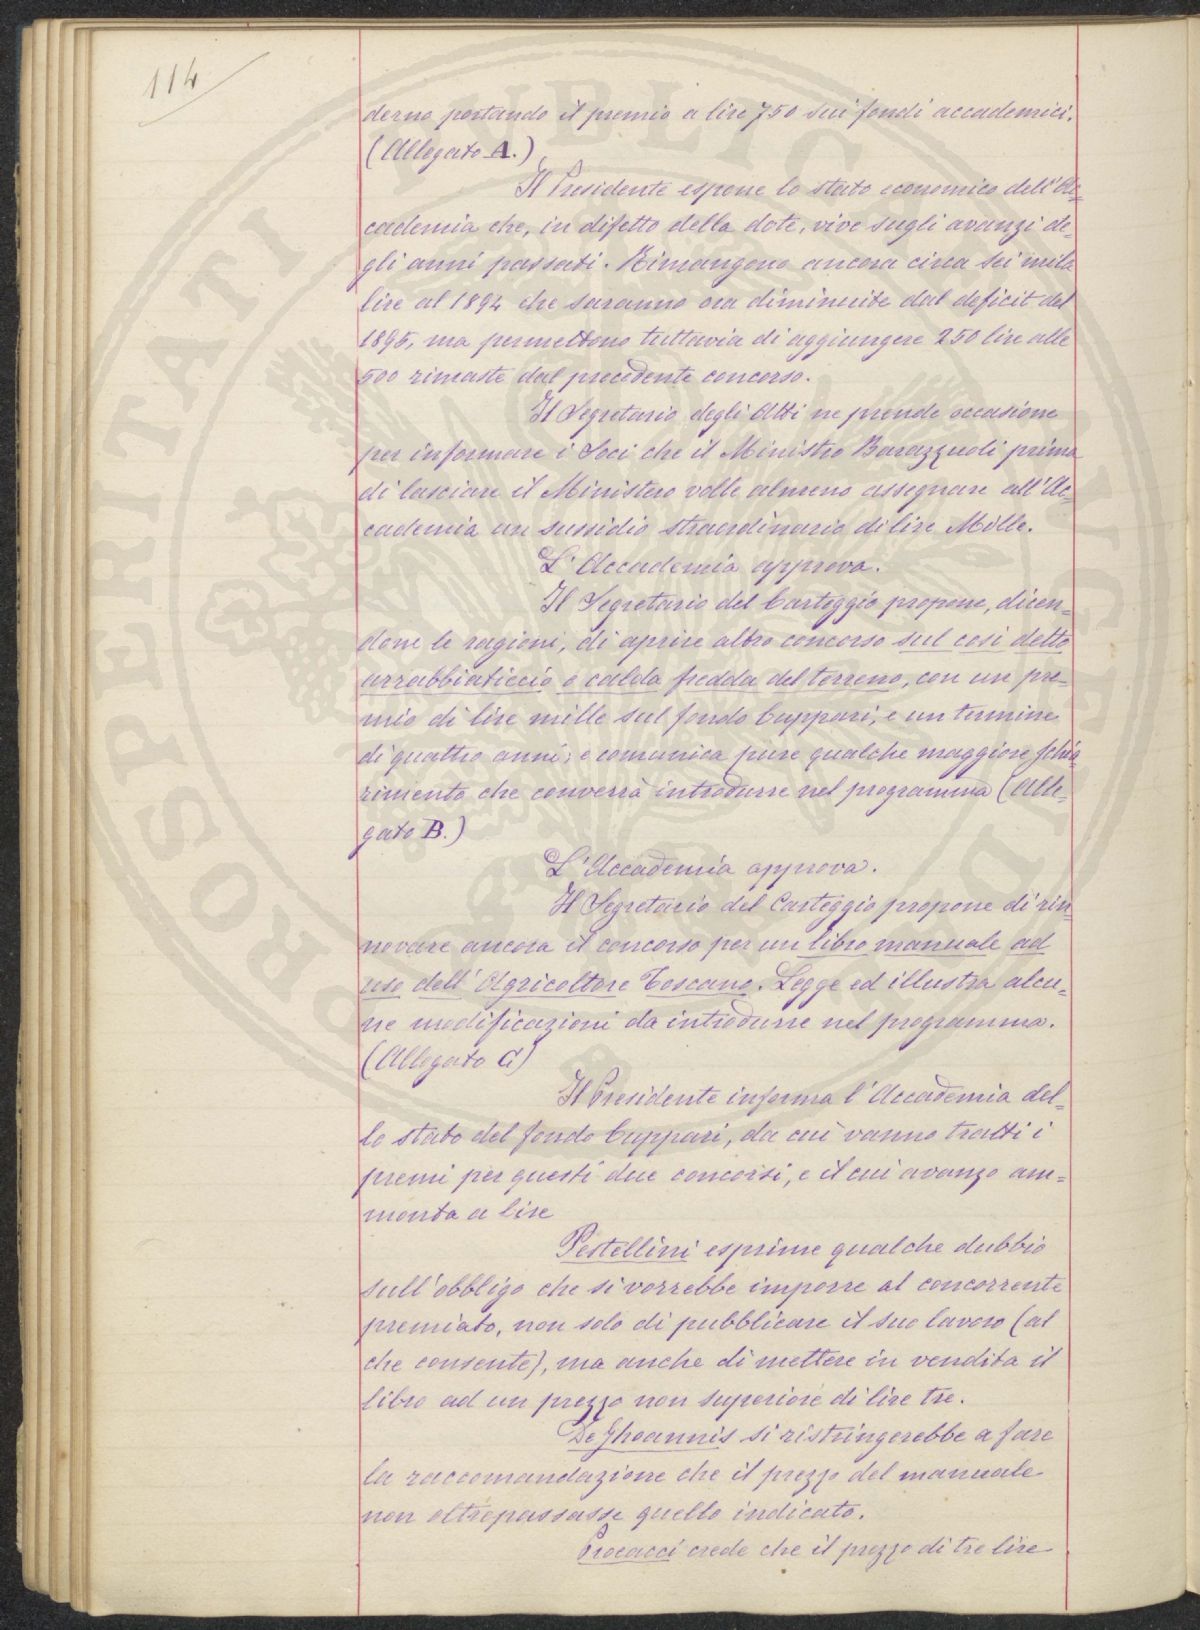 114
derno portando il premio a lire 750 sui fondi accademici.
(Allegato A.)
Il Presidente espone lo stato economico dell'Ac=
cademia che, in difetto della dote, vive sugli avanzi de=
gli anni passati. Rimangono ancora circa sei mila
lire al 1894 che saranno ora diminuite dal deficit del
1895, ma permettono tuttavia di aggiungere 250 lire alle
500 rimaste dal precedente concorso.
Il Segretario degli Atti ne prende occasione
per informare i Soci che il Ministro Barazzuoli prima
di lasciare il Ministero volle almeno assegnare all'Ac=
cademia un sussidio straordinario di lire Mille.
L'Accademia approva.
Il Segretario del Carteggio propone, dicen=
done le ragioni, di aprire altro concorso sul così detto
arrabbiaticcio o calda fredda del terreno, con un pre=
mio di lire mille sul fondo Cuppari, e un termine
di quattro anni; e comunica pure qualche maggiore schia=
rimento che converrà introdurre nel programma (Alle=
gato B.)
L'Accademia approva.
Il Segretario del Carteggio propone di rin=
novare ancora il concorso per un libro manuale ad
uso dell'Agricoltore Toscano. Legge ed illustra alcu=
ne modificazioni da introdurre nel programma.
(Allegato C)
Il Presidente informa l'Accademia del=
lo stato del fondo Cuppari, da cui vanno tratti i
premi per questi due concorsi, e il cui avanzo am=
monta a lire
Pestellini esprime qualche dubbio
sull'obbligo che si vorrebbe imporre al concorrente
premiato, non solo di pubblicare il suo lavoro (al
che consente), ma anche di mettere in vendita il
libro ad un prezzo non superiore di lire tre.
De Jhoannis si ristringerebbe a fare
la raccomandazione che il prezzo del manuale
non oltrepassasse quello indicato.
Procacci crede che il prezzo di tre lire
PROSPERITATI PUBLICAE AUGENDAE